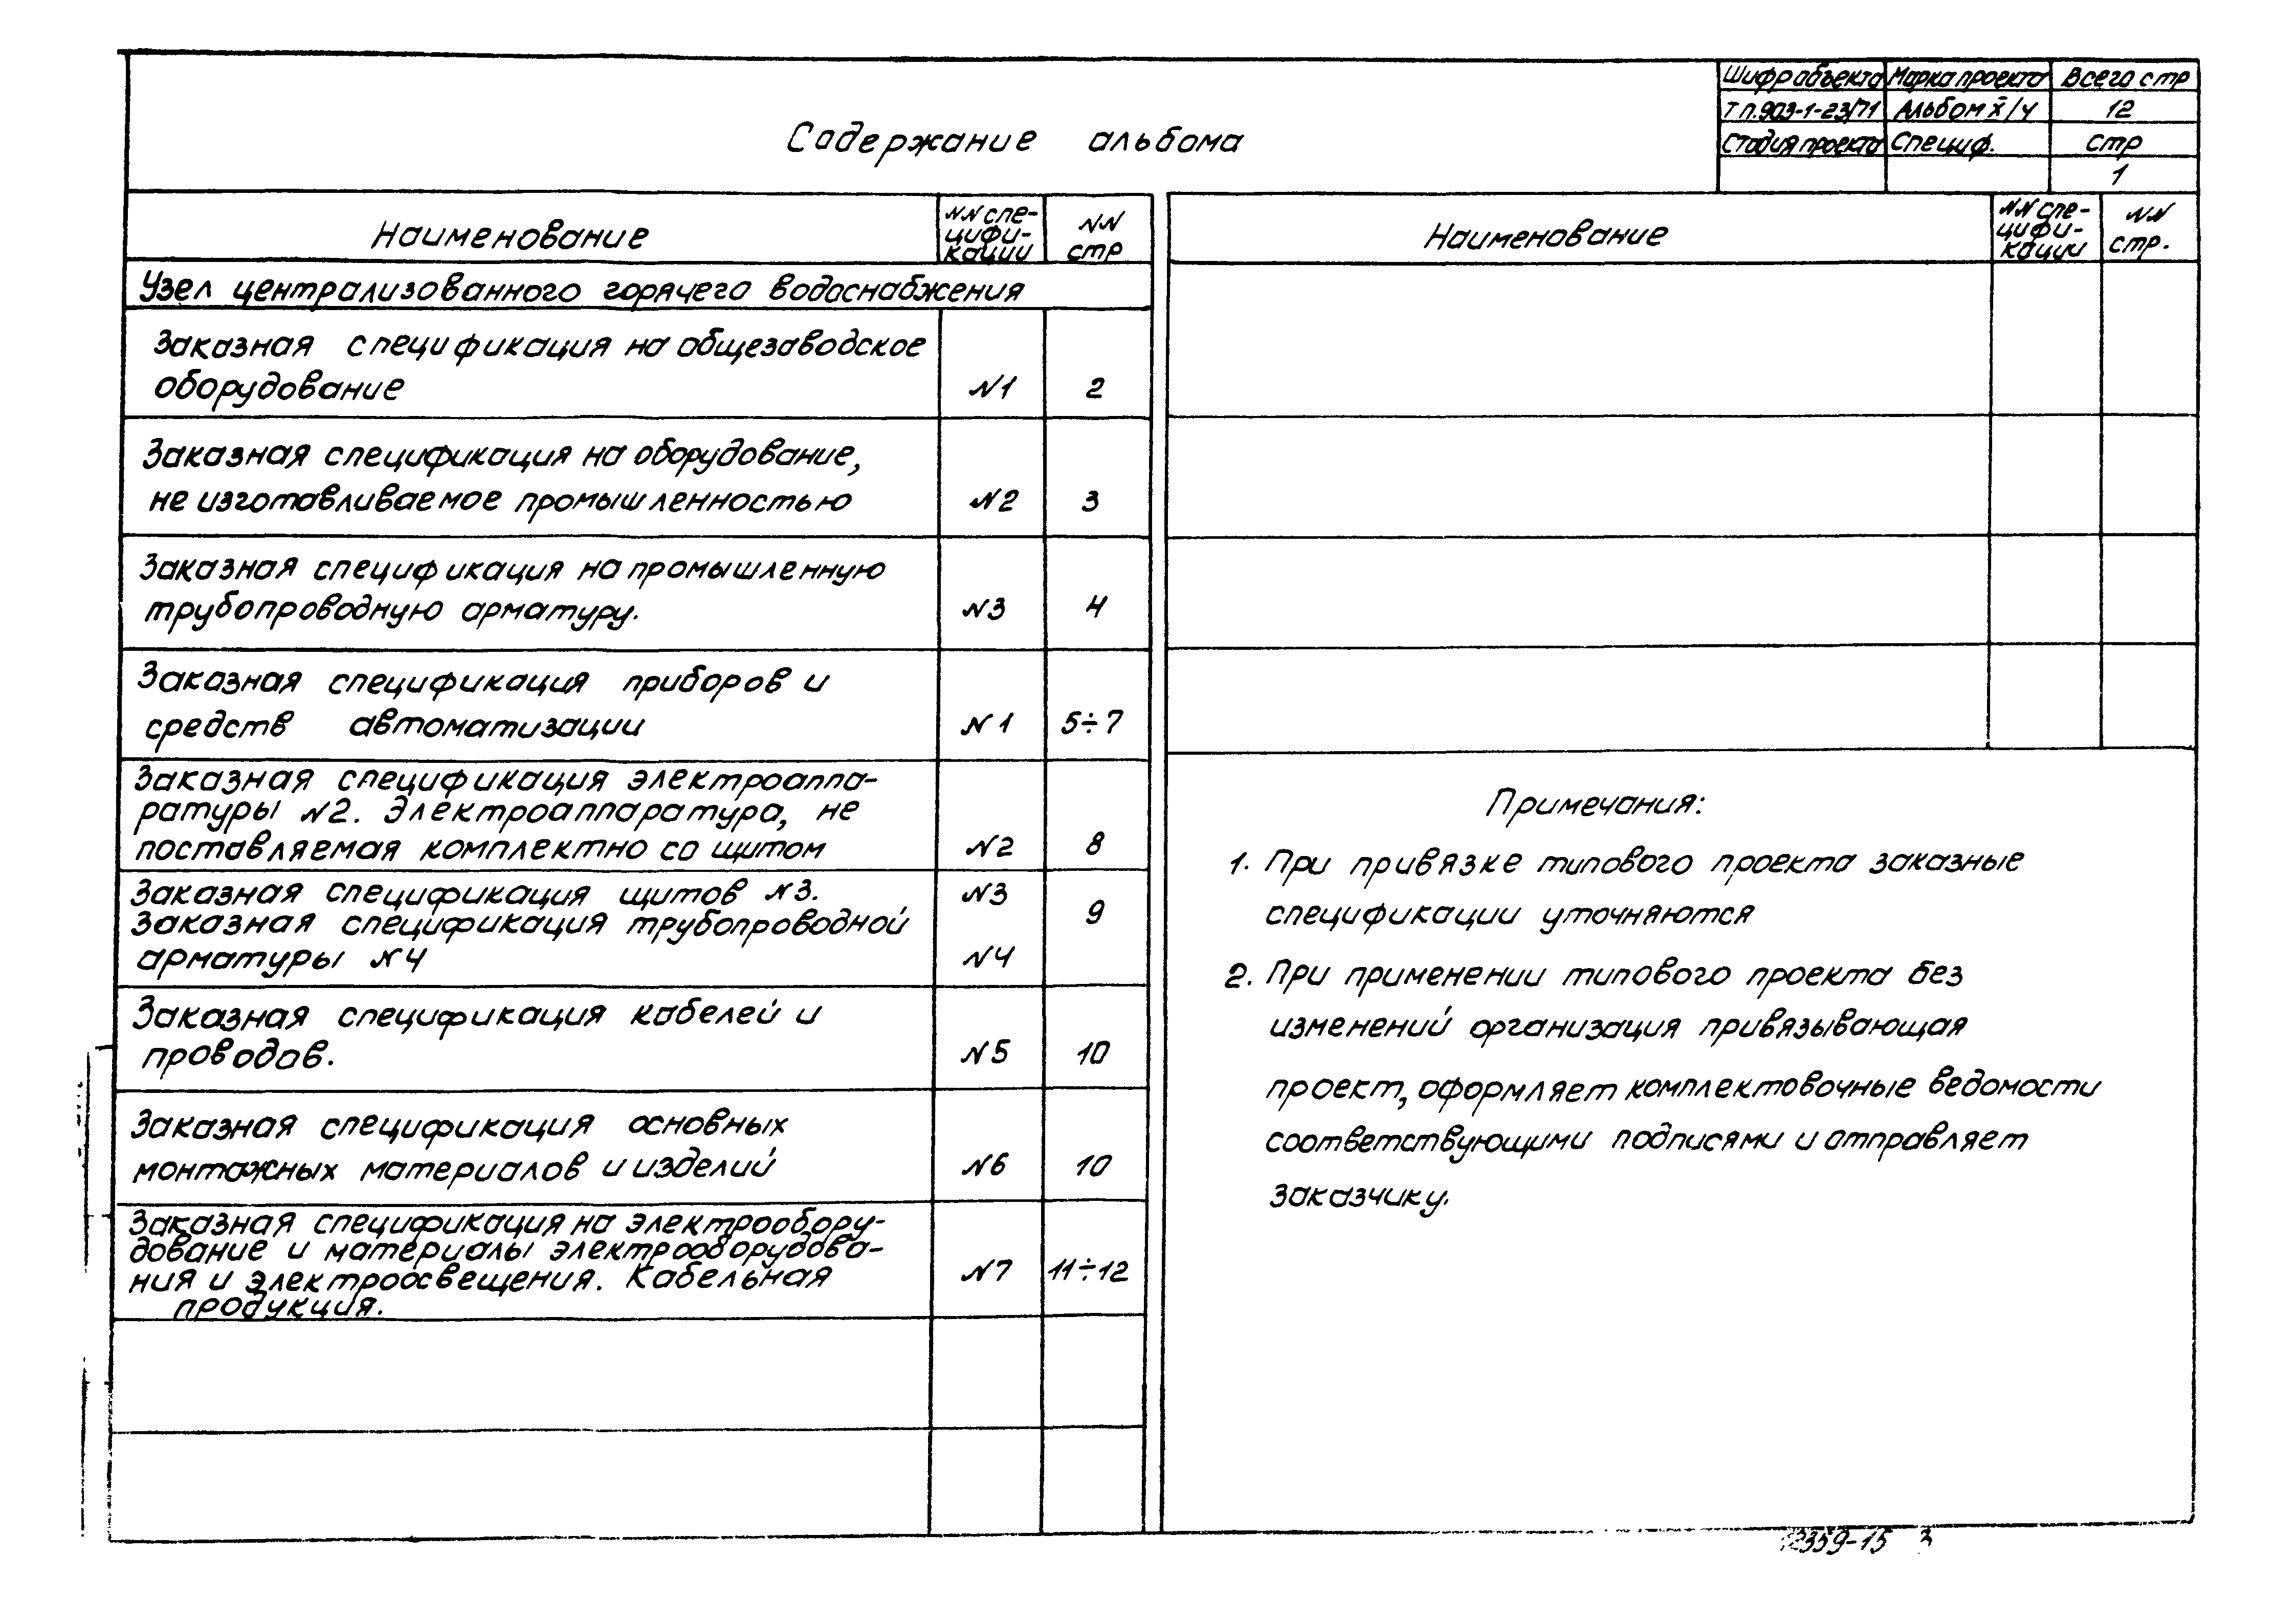 Содержание альбома
Шифр объекта Марка проекта Всего стр
Т п.903-1-23/71 Альбом X/4 12
Стадия проекта Специф. стр
1
Наименование
NN спе-
цифи-
кации
NN
стр
Узел централизованного горячего водоснабжения
Заказная спецификация на общезаводское
оборудование N1 2
Заказная спецификация на оборудование,
не изготавливаемое промышленностью N2 3
Заказная спецификация на промышленную
трубопроводную арматуру. N3 4
Заказная спецификация приборов и
средств автоматизации N1 5÷7
Заказная спецификация электроаппа-
ратуры N2. Электроаппаратура, не
поставляемая комплектно со щитом N2 8
Заказная спецификация щитов N3. N3
Заказная спецификация трубопроводной 9
арматуры N4 N4
Заказная спецификация кабелей и
проводов. N5 10
Заказная спецификация основных
монтажных материалов и изделий N6 10
Заказная спецификация на электрообору-
дование и материалы электрооборудова-
ния и электроосвещения. Кабельная N7 11÷12
продукция.
Наименование
NN спе-
цифи-
кации
NN
стр.
Примечания:
1. При привязке типового проекта заказные
спецификации уточняются
2. При применении типового проекта без
изменений организация привязывающая
проект, оформляет комплектовочные ведомости
соответствующими подписями и отправляет
заказчику.
359-15 3